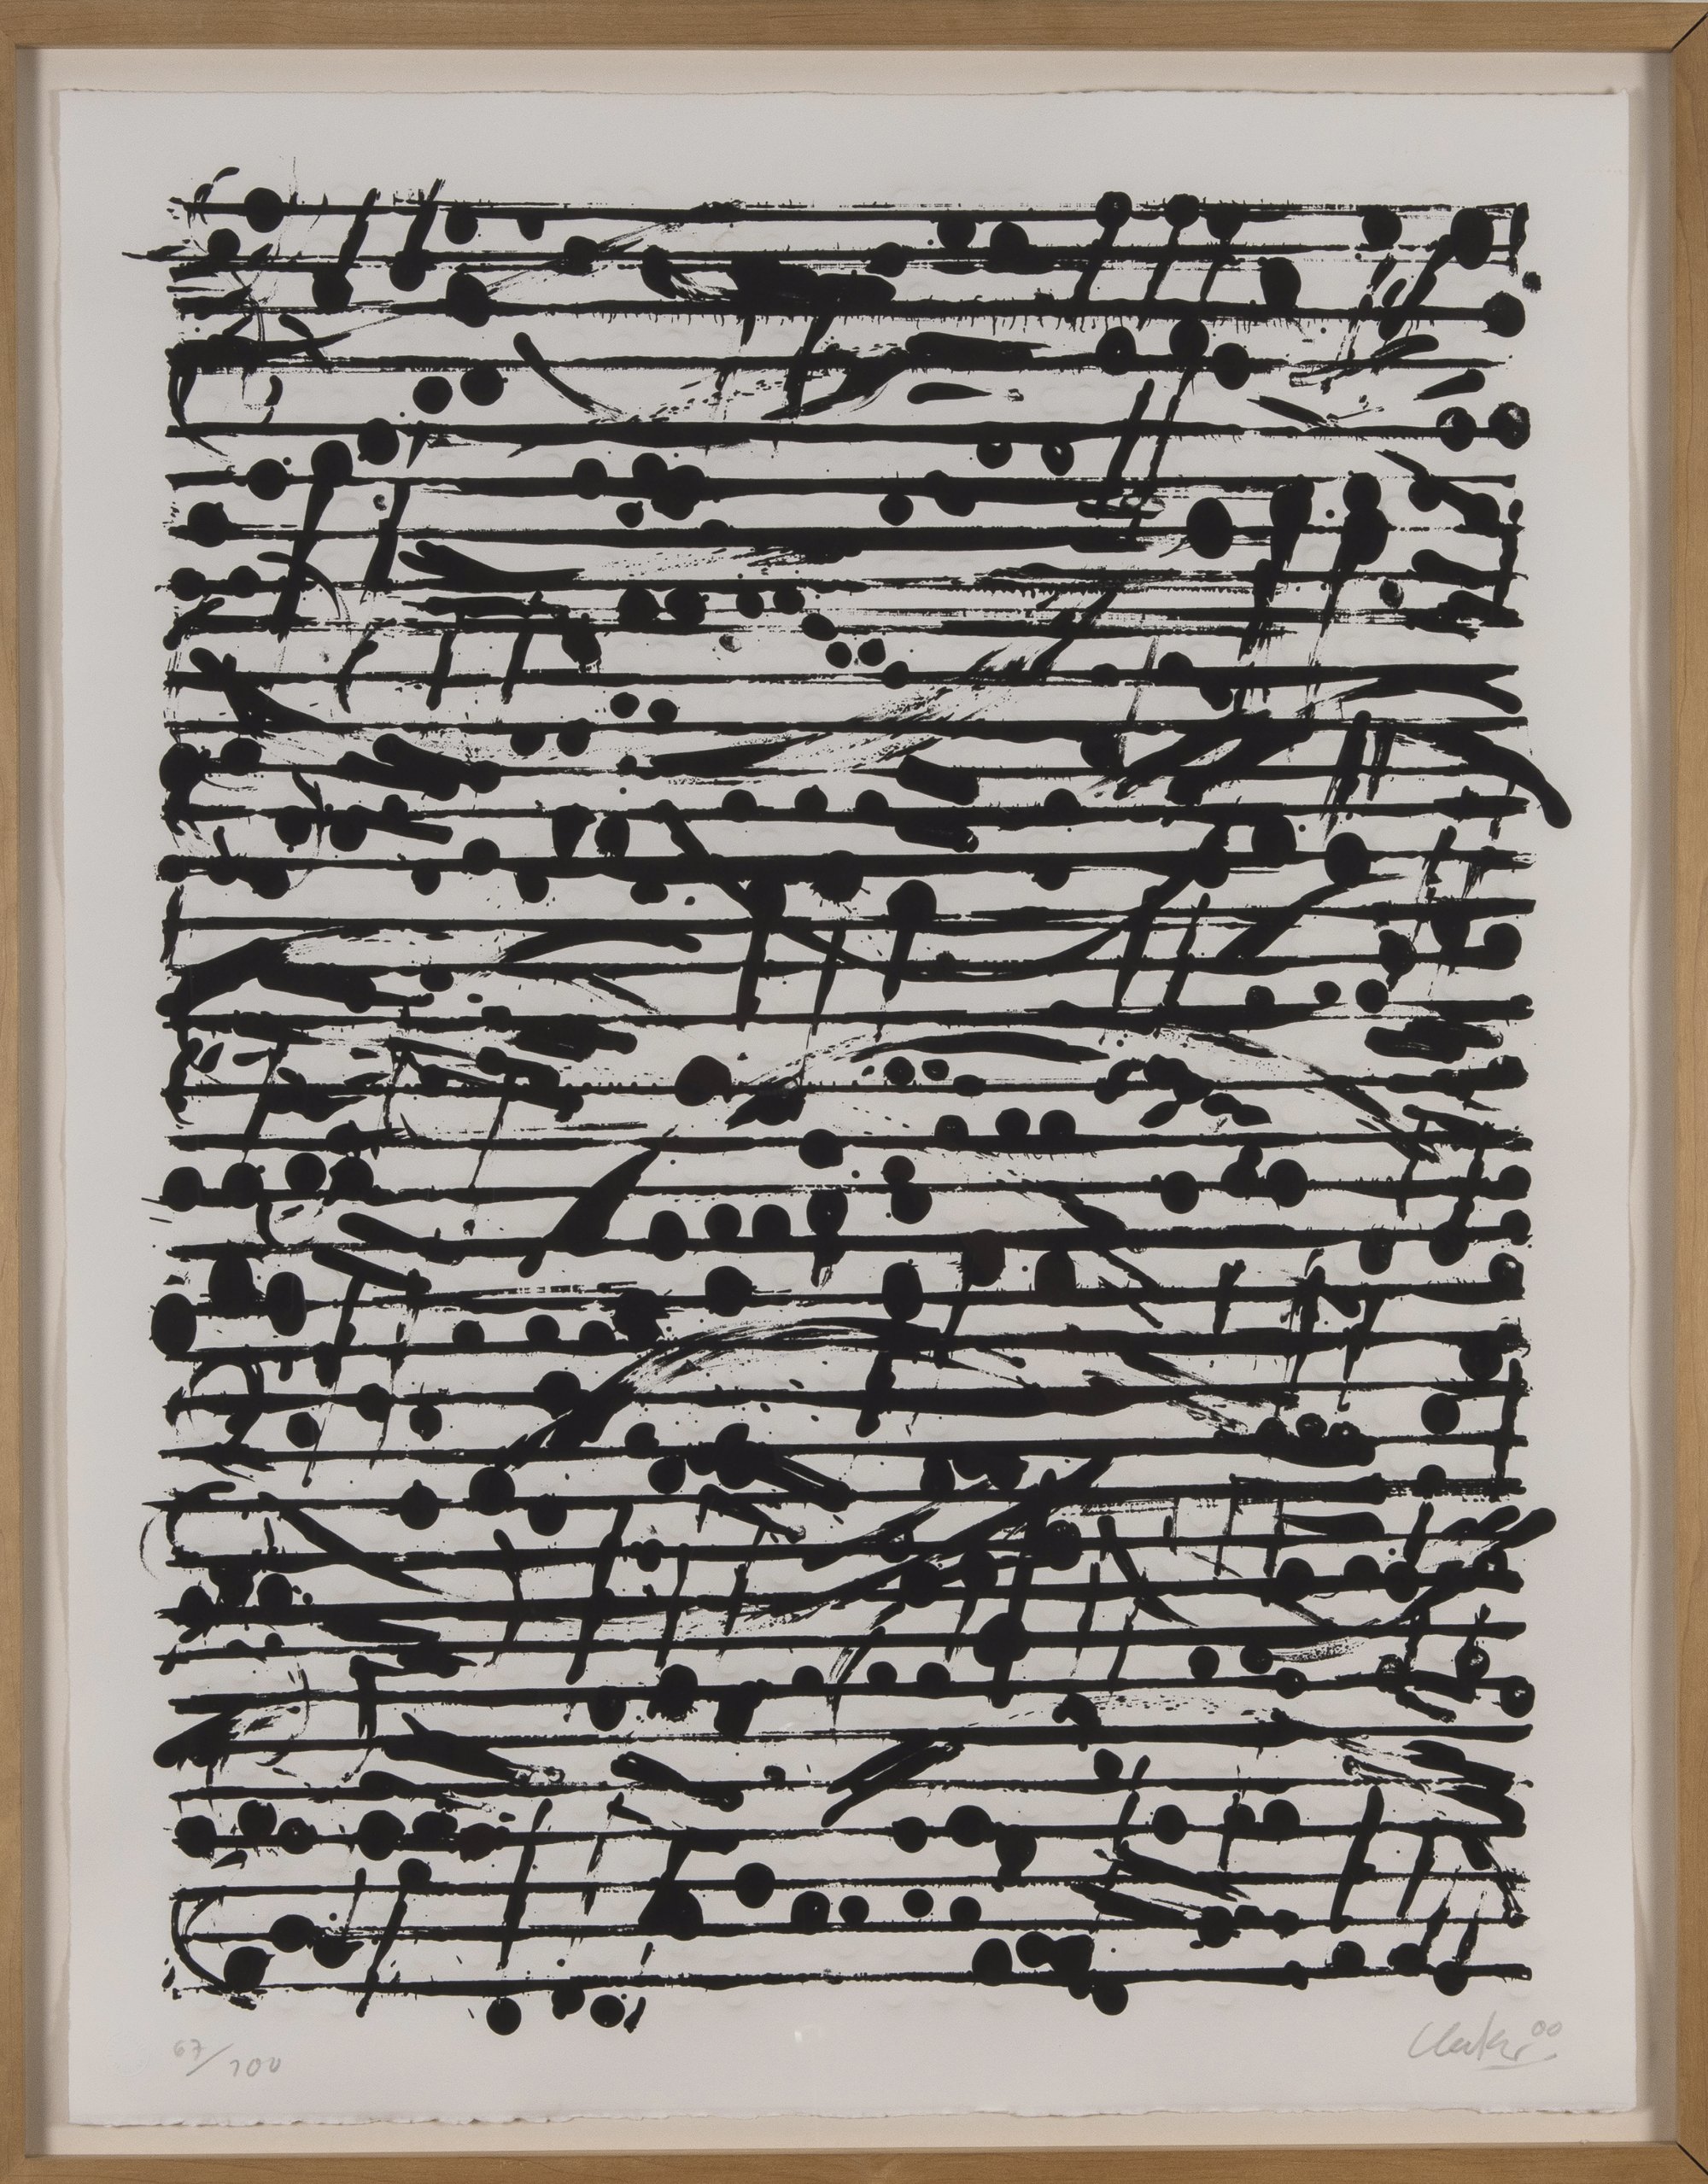 67/100
Uecker 00